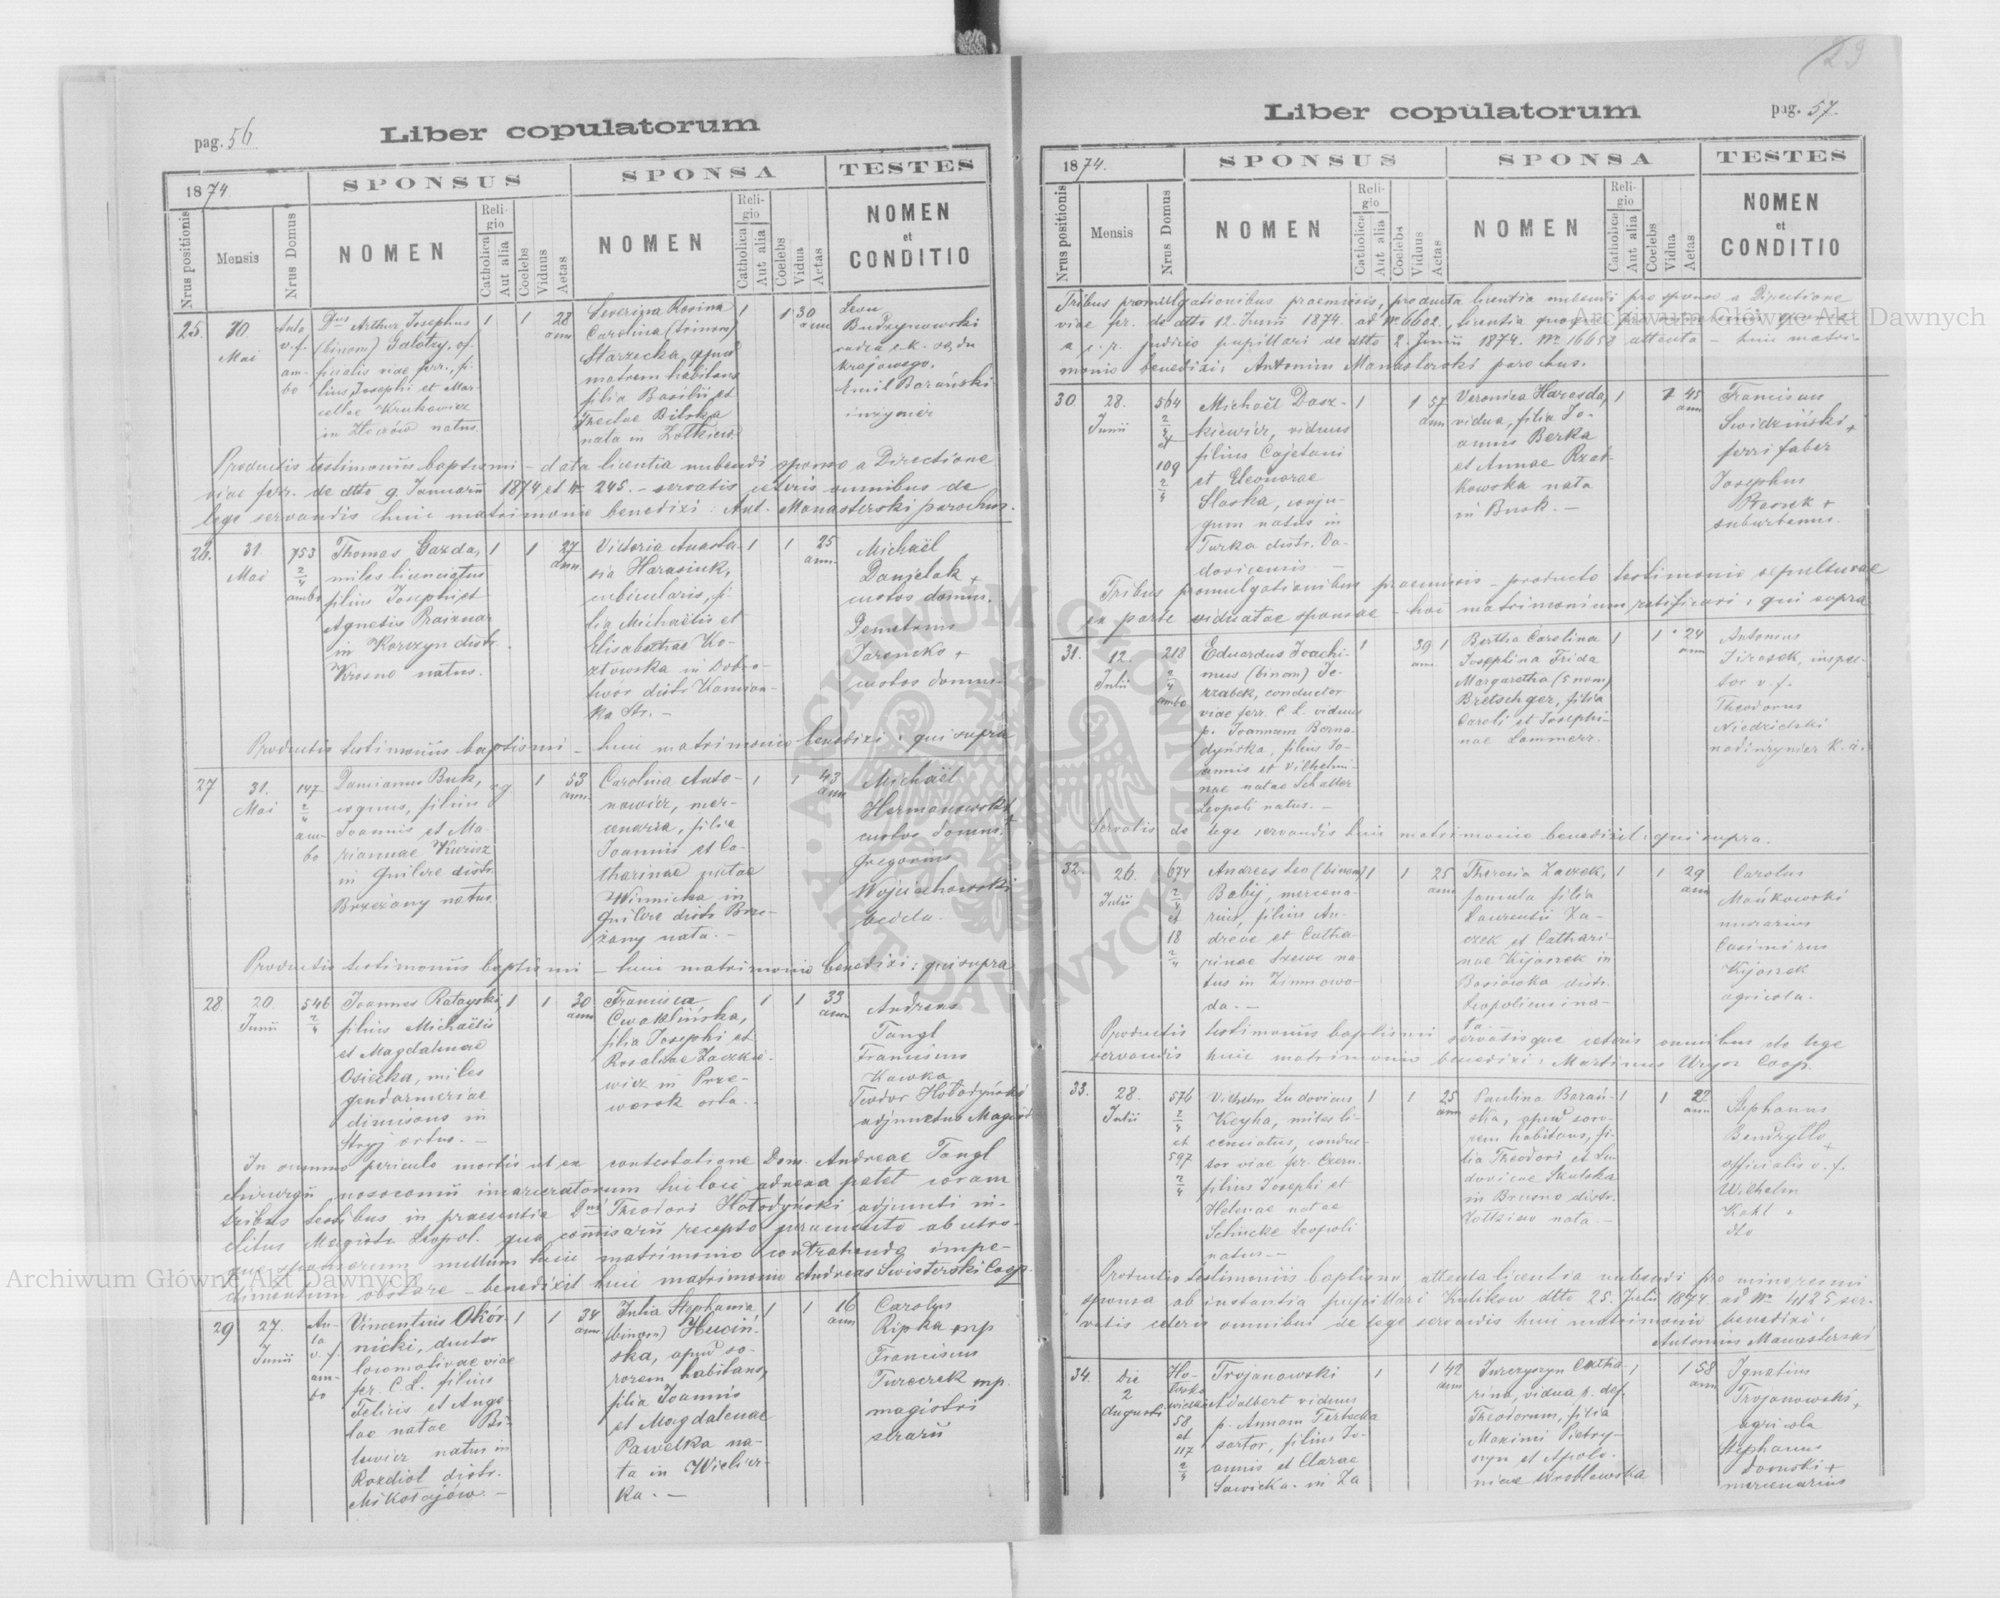 pag. 56.
Liber copulatorum
1874
SPONSUS
SPONSA
TESTES
Nrus positionis
Mensis
Nrus Domus
NOMEN
Religio
Catholica
Aut alia
Coelebs
Viduus
Aetas
NOMEN
Religio
Catholica
Aut alia
Coelebs
Vidua
Aetas
NOMEN
et
CONDITIO
25. 30. Mai
Dnus Arthur Josephus
(binom)
lius Josephi et Mar-
in natus.
1 1 28 ann
Severina Rosina
Carolina (trinom)
Starzecka, apud
matrem habitans
filia Basilii et
Theclae Bilska
nata in Żółkiew.
1 1 30 ann
Leon
Budzynowski
radca c.k. sądu
krajowego.
Emil Barański
inżynier
Productis testimoniis baptismi – data licentia nubendi sponso a Directione
viae ferr. de dtto 9. Januarii 1874 et Nr. 245. – servatis ceteris omnibus de
lege servandis huic matrimonio benedixi: Ant. Manasterski parochus.
26. 31. Mai
753 2/4 ambo
Thomas Gazda,
miles licenciatus
filius Josephi et
Agnetis
in Korczyn distr.
Krosno natus.
1 1 27 ann.
Victoria Anasta-
sia Harasiuk,
cubicularis, fi-
lia Michaëlis et
Elisabethae Ko-
złowska in Dobro-
twór distr. Kamion-
ka Str. –
1 1 25 ann.
Michaël
Danielak +
custos domus.
Demetrius
+
custos domus.
Productis testimoniis baptismi – huic matrimonio benedixi: qui supra
27 31. Mai
147 2/4 am-
bo
Damianus Buk,
filius
Joannis et Ma-
riannae
in distr.
Brzeżany natus.
1 53 ann.
Carolina Anto-
nowicz, mer-
cenaria, filia
Joannis et Ca-
tharinae natae
Winnicka in
distr. Brze-
żany nata. –
1 1 43 ann
Michaël
Hermanowski +
custos domus.
Gregorius
Wojciechowski
bedela.
Productis testimoniis baptismi – huic matrimonio benedixi: qui supra
28. 20. Junii
546 2/4
Joannes Ratayski,
filius Michaëlis
et Magdalenae
Osiecka, miles
gendarmeriae
dimissus in
Stryj ortus. –
1 1 30 ann
Francisca
Cwaklińska,
filia Josephi et
Rosaliae
wicz in Prze-
worsk orta. –
1 1 33 ann
Andreas
Tangl
Franciscus
Kawka
Teodor Hołodyński
adjunctus Magist.
In summo periculo mortis ut ex contestatione Dom. Andreae Tangl
chirurgii nosocomii incarceratorum hic loci adnexa patet coram
tribus testibus in praesentia Dni Theodori Hołodyński adjuncti in-
clitus Magistr. Leopol. qua comisarii recepto juramento – ab utro-
que sponsorum nullum huic matrimonio contrahendo impe-
dimentum obstare – benedixit huic matrimonio Andreas Swisterski Coop.
29 27. Junii
Vincentius Okór-
nicki, ductor
locomotivae viae
fer. C.L. filius
Felicis et Ange-
lae natae
natus in
Rozdiol distr.
Mikołajów. –
1 1 34 ann
Julia Stephania
(binom)
ska, apud so-
rorem habitans,
filia Joannis
et Magdalenae
Pawełka na-
ta in Wielicz-
ka. –
1 1 16 ann
Carolus
Ripka mp
Franciscus
Tureczek mp.
magistri
29
pag. 57.
Liber copulatorum
1874.
SPONSUS
SPONSA
TESTES
Nrus positionis
Mensis
Nrus Domus
NOMEN
Religio
Catholica
Aut alia
Coelebs
Viduus
Aetas
NOMEN
Religio
Catholica
Aut alia
Coelebs
Vidua
Aetas
NOMEN
et
CONDITIO
Tribus promulgationibus praemissis, producta licentia nubendi pro sponso a Directione
viae fer. de dtto 12. Junii 1874. ad Nr 6602, licentia quoque pro
a c. r. judicio pupillari de dtto 2. Junii 1874. Nr 16658 attenta – huic matri-
monio benedixi: Antonius Manasterski parochus.
30. 28. Junii
564 2/4 et 109 2/4
Michaël Dasz-
kiewicz, viduus
filius Cajetani
et Eleonorae
Slaska, conju-
gum natus in
Turka distr.
1 1 57 ann
Veronica Harasda,
vidua, filia Jo-
annis Berka
et Annae Rzat-
kowska nata
in Busk. –
1 1 45 ann
Franciscus
Swidziński +
ferri faber
Josephus
+
suburbanus.
Tribus promulgationibus praemissis – producto testimonio sepulturae
ex parte viduatae sponsae – hoc matrimonium ratificavi: qui supra
31. 12. Julii
218 2/4 ambo
Eduardus Joachi-
mus (binom) Je-
rzabek, conductor
viae ferr. C.L. viduus
p. Joannam Borno-
dyńska, filius Jo-
annis et Vilhelmi-
nae natae Schaller
Leopoli natus. –
1 39 ann. 1
Bertha Carolina
Josephina Frida
Margaretha (5 nom)
Bretschger, filia
Caroli et Josephi-
nae Lammerr.
1 1 24 ann
Antonius
Jirasek, inspec-
tor v. f.
Theodorus
Niedzielski
nadinżynier k. ż.
Servatis de lege servandis huic matrimonio benedixit: qui supra.
32. 26. Julii
674 2/4 et 18 2/4
Andreas Leo (binom)
Babij, mercena-
rius, filius An-
dreae et Catha-
rinae na-
tus in Zimnowo-
da. –
1 1 25 ann
Theresia Zaczek,
famula filia
Laurentii Za-
czek et Cathari-
nae Kijaszek in
Basiówka distr.
Leopoliensi na-
ta –
1 1 29 ann
Carolus
Mańkowski
murarius
Casimirus
Kijaszek
agricola.
Productis testimoniis baptismi servatisque ceteris omnibus de lege
servandis huic matrimonio benedixi: Martinus Coop.
33. 28. Julii
576 2/4 et 597 2/4
Vilhelm Ludovicus
Keyha, miles li-
cenciatus, conduc-
tor viae fer. Czern.
filius Josephi et
Helenae natae
Schncke Leopoli
natus. –
1 1 25 ann
Paulina Barań-
ska, apud soro-
rem habitans, fi-
lia Theodori et Lu-
dovicae Skulska
in distr.
Żółkiew nata. –
1 1 22 ann
Stephanus
+
officialis v. f.
Wilhelm
Kohl +
dto
Productis testimoniis baptismi, attenta licentia nubendi pro minorenni
sponsa ab instantia pupillari Kulikow dtto 25. Julii 1874. ad Nr 4425 ser-
vatis ceteris omnibus de lege servandis huic matrimonio benedixi:
Antonius Manasterski
34. Die 2 Augusti
58 et 117 2/4
Trojanowski
Adalbert viduus
p. Annam Terlecka
sartor, filius Jo-
annis et Clarae
Sawicka. in Za
1 1 42 ann
Jurczyszyn Catha-
rina, vidua p. def.
Theodorum, filia
Maximi Pietry-
szyn et Apolo-
niae Wroblewska
1 1 58 ann
Ignatius
Trojanowski,
agricola
Stephanus
+
mercenarius
Archiwum Główne Akt Dawnych
Archiwum Główne Akt Dawnych
ARCHIWUM GŁÓWNE AKT DAWNYCH